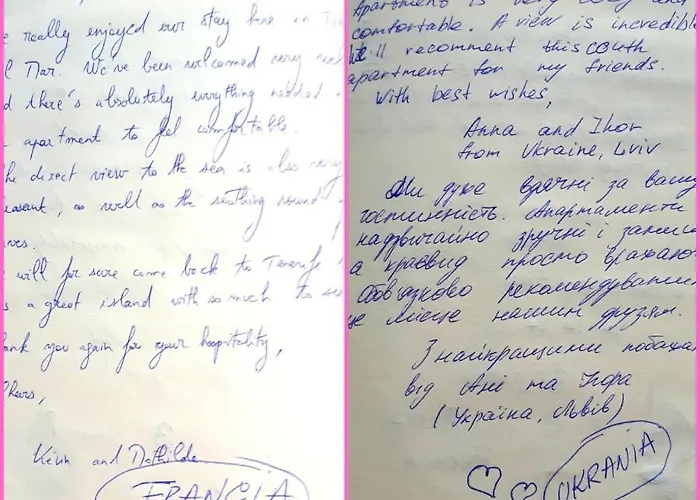 really enjoyed our stay here in
Mar. We've been welcomed very
there's absolutely everything needed
apartment to feel comfortable.
he direct view to the sea is also very
easant, as well as the soothing sound
ves.
will for sure come back to Tenerife
a great island with so much to see
ank you again for your hospitality,
heers,
Kévin and Mathilde
FRANCIA
Apartment is very cozy and
comfortable. A view is incredible
recomment this couth
apartment for my friends.
With best wishes,
Anna and Ihor
from Ukraine, Lviv
Ми дуже вдячні за вашу
гостинність. Апартаменти
надзвичайно зручні і
а краєвид просто вражаю
Обов'язково рекомендуватим
це місце нашим друзям.
З найкращими побажа
від Ані та Ігора
(Україна, Львів)
UKRANIA